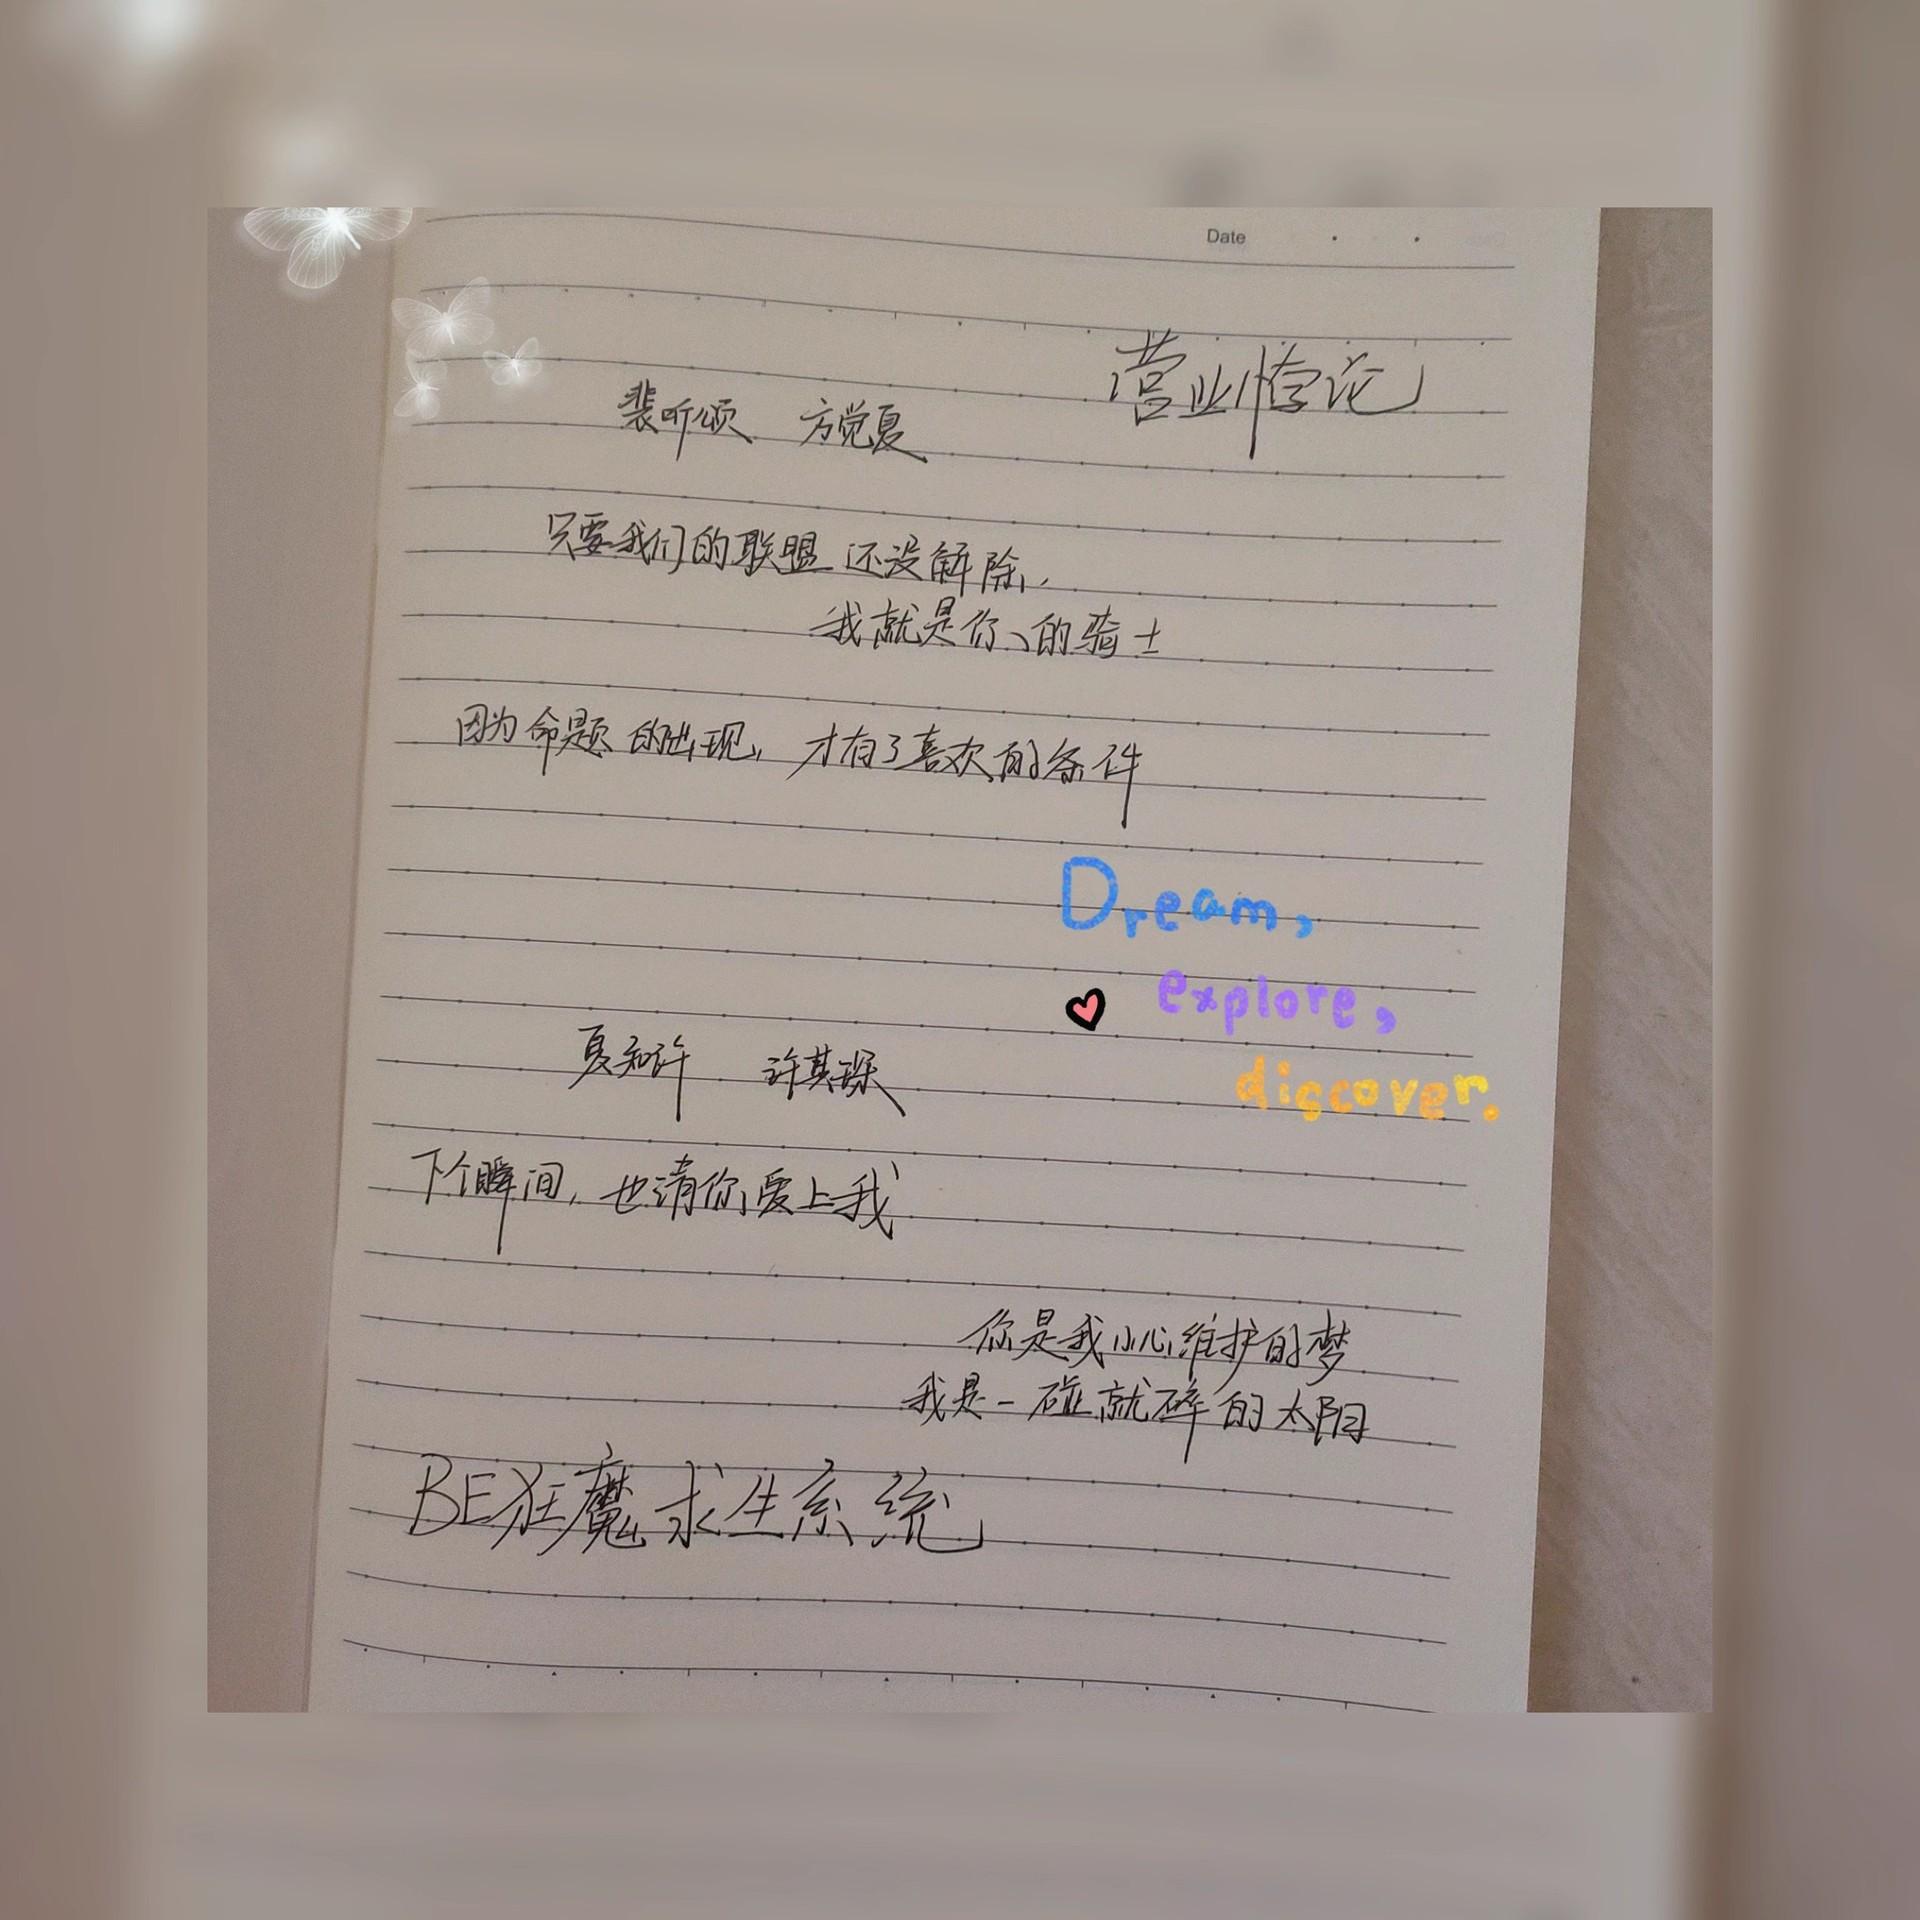 Date
营业悖论
裴听颂 方觉夏
只要我们的联盟还没解除,
我就是你的骑士
因为命题的出现,才有了喜欢的条件
Dream,
explore,
discover.
夏知许 许其琛
下个瞬间,也请你爱上我
你是我小心维护的梦
我是一碰就碎的太阳
BE狂魔求生系统